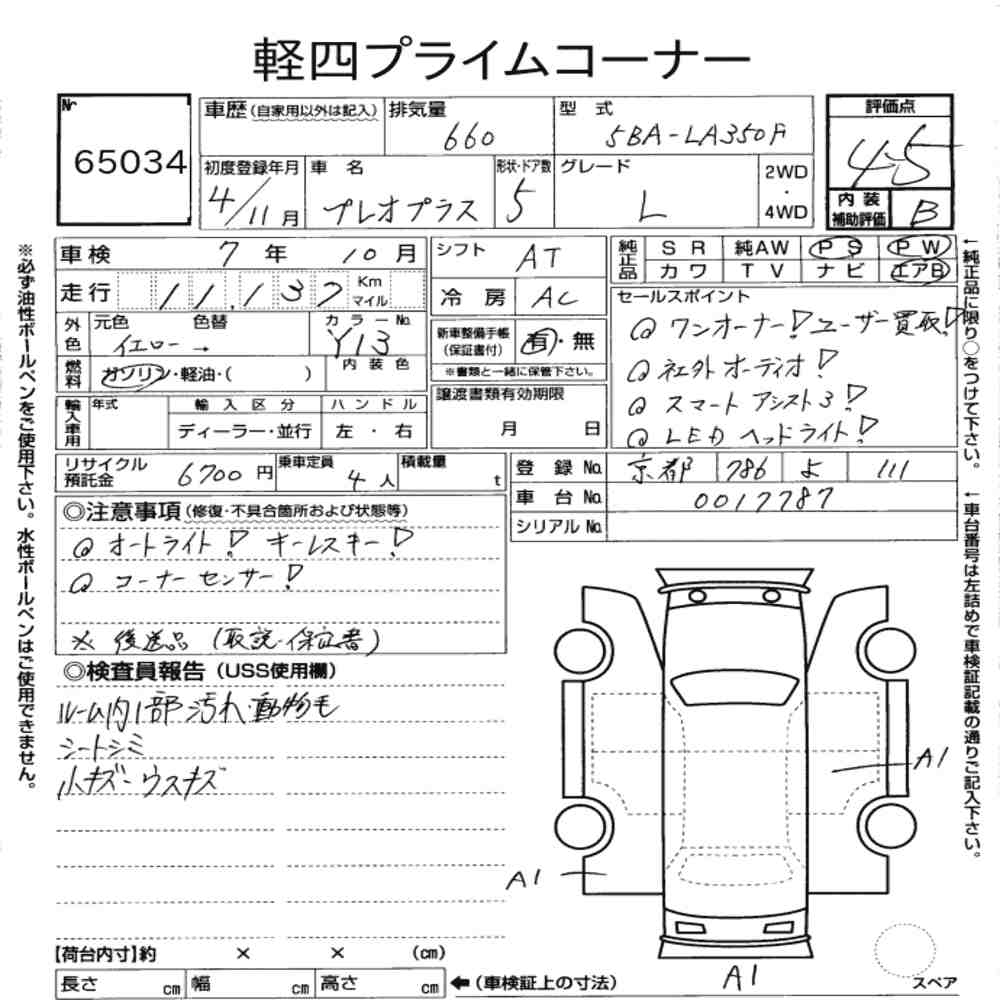 軽四プライムコーナー
Nr 65034
車歴(自家用以外は記入) 排気量 660 型 式 5BA-LA350F
初度登録年月 4/11月 車 名 プレオプラス 形状・ドア数 5 グレード L 2WD・4WD
評価点 4.5
内装補助評価 B
車検 7年 10月 シフト AT
走行 11,137 Km マイル 冷房 AC
外色 元色 イエロー → 色替 カラーNo. Y13
燃料 ガソリン・軽油・( ) 内装色
新車整備手帳(保証書付) 有・無
※書類と一緒に保管下さい。
輸入車用 年式 輸入区分 ディーラー・並行 ハンドル 左・右
譲渡書類有効期限 月 日
純正品 SR 純AW PS PW
カワ TV ナビ エアB
セールスポイント
◎ ワンオーナー! ユーザー買取!
◎ 社外オーディオ!
◎ スマートアシスト3!
◎ LEDヘッドライト!
リサイクル預託金 6700円 乗車定員 4人 積載量 t
登録No. 京都 786 よ 111
車台No. 0017787
シリアルNo.
◎注意事項(修復・不具合箇所および状態等)
◎ オートライト! キーレスキー!
◎ コーナーセンサー!
※ 後送品 (取説・保証書)
◎検査員報告(USS使用欄)
ルーム内1部汚れ・動物毛
シートシミ
小キズ・ウスキズ
A1
A1
A1
【荷台内寸】約 × × (cm)
長さ cm 幅 cm 高さ cm ←(車検証上の寸法)
スペア
※必ず油性ボールペンをご使用下さい。水性ボールペンはご使用できません。
←純正品に限り○をつけて下さい。
←車台番号は左詰めで車検証記載の通りご記入下さい。